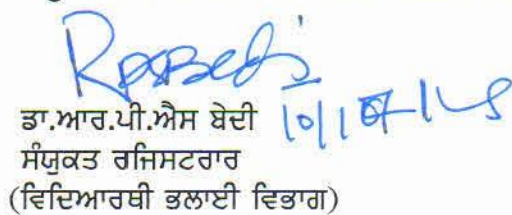 RPSBedi
ਡਾ.ਆਰ.ਪੀ.ਐਸ ਬੇਦੀ
ਸੰਯੁਕਤ ਰਜਿਸਟਰਾਰ
(ਵਿਦਿਆਰਥੀ ਭਲਾਈ ਵਿਭਾਗ)